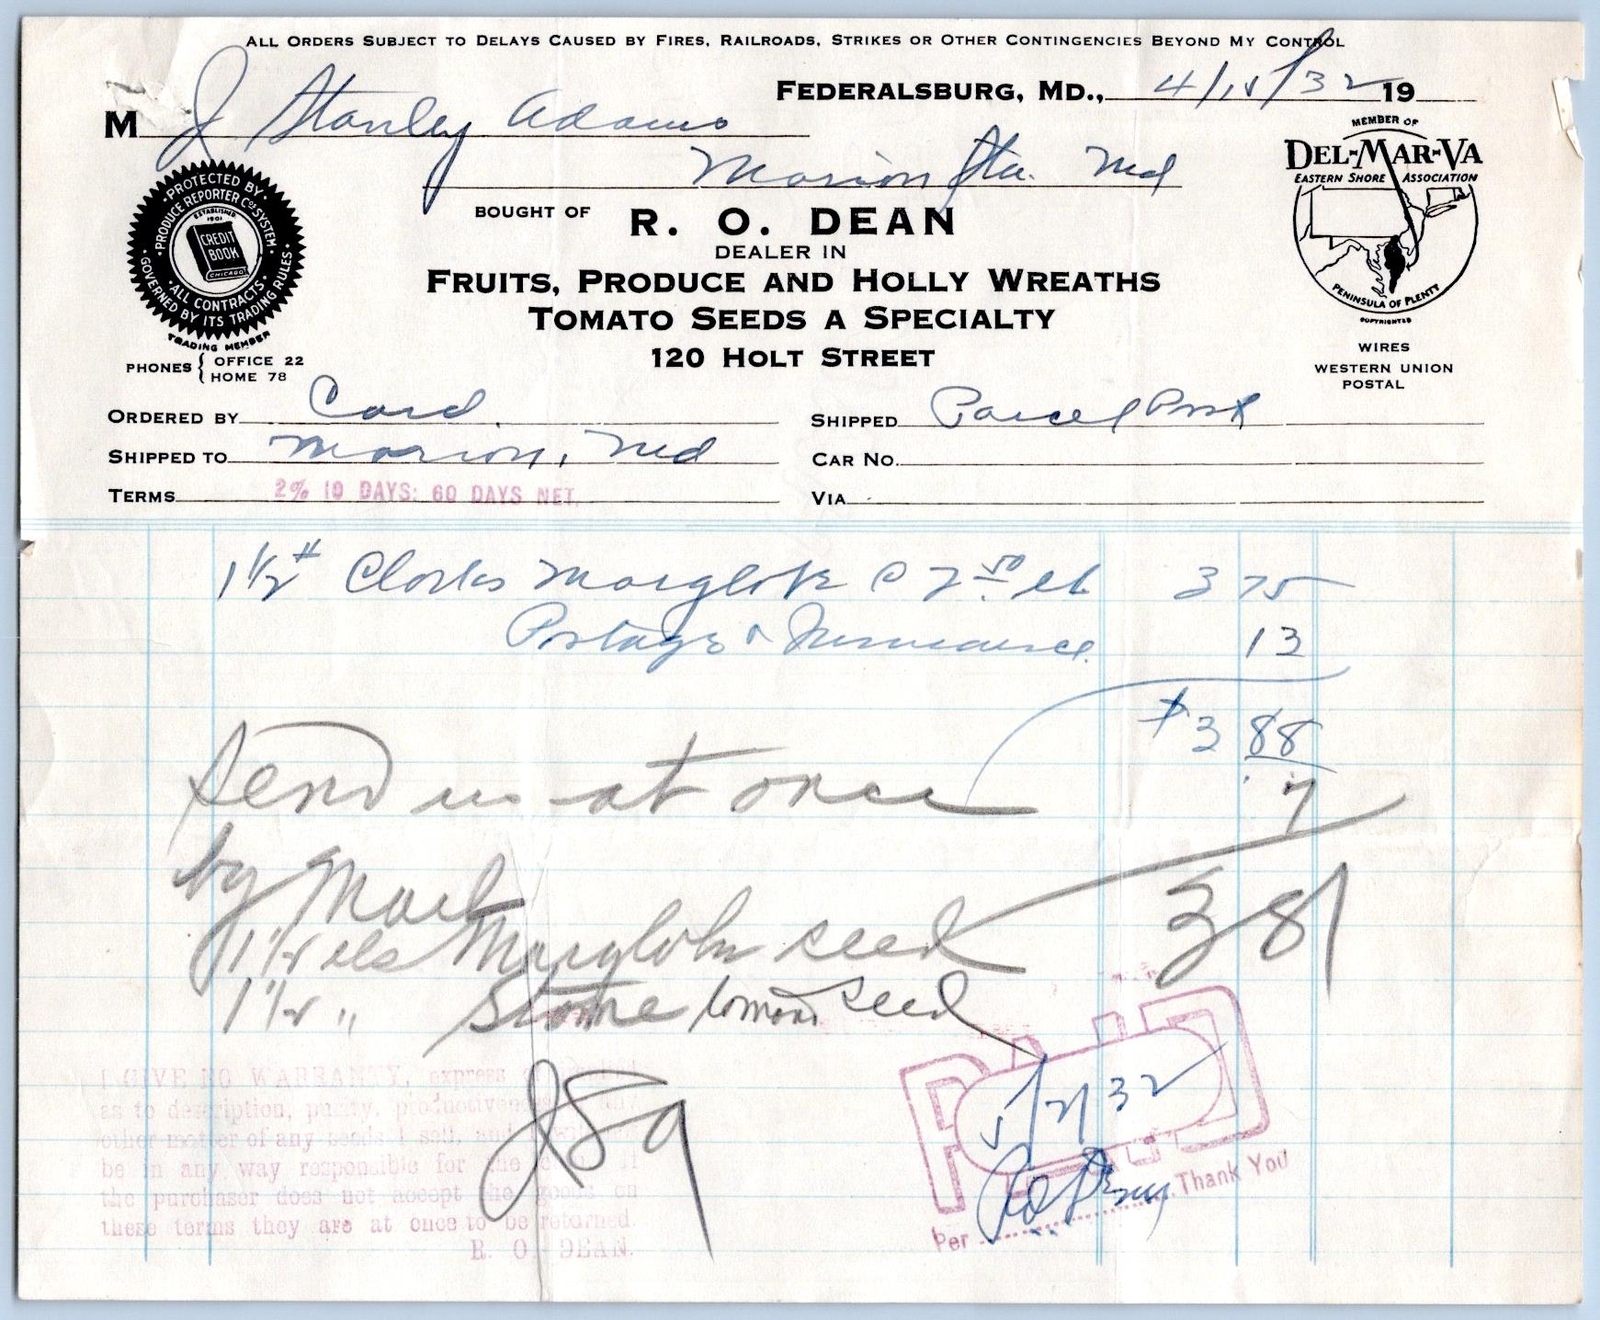 ALL ORDERS SUBJECT TO DELAYS CAUSED BY FIRES, RAILROADS, STRIKES OR OTHER CONTINGENCIES BEYOND MY CONTROL
FEDERALSBURG, MD., 4/15/32 19
M J Stanley Adams
Marion Sta. Md
PROTECTED BY
PRODUCE REPORTER CO'S SYSTEM
ESTABLISHED
1901
CREDIT
BOOK
CHICAGO
ALL CONTRACTS
GOVERNED BY ITS TRADING RULES
TRADING MEMBER
PHONES { OFFICE 22
HOME 78
BOUGHT OF R. O. DEAN
DEALER IN
FRUITS, PRODUCE AND HOLLY WREATHS
TOMATO SEEDS A SPECIALTY
120 HOLT STREET
MEMBER OF
DEL-MAR-VA
EASTERN SHORE ASSOCIATION
PENINSULA OF PLENTY
COPYRIGHTED
WIRES
WESTERN UNION
POSTAL
ORDERED BY Card
SHIPPED Parcel Post
SHIPPED TO Marion, Md
CAR NO.
TERMS 2% 10 DAYS: 60 DAYS NET.
VIA
1 1/2 # Clarks Marglobe @ 2.50 lb 3 75
Postage & Insurance. 13
$3 88
7
Send us at once
by Mail 3 81
1 1/2 lbs Marglobe seed
1 1/2 " Stone tomato seed
JSA
I GIVE NO WARRANTY, express
as to description, purity, productiveness any
other matter of any seeds I sell, and
be in any way responsible for the crop. If
the purchaser does not accept the goods on
these terms they are at once to be returned.
R. O. DEAN.
PAID
5/2/32
Thank You
Per R O Dean